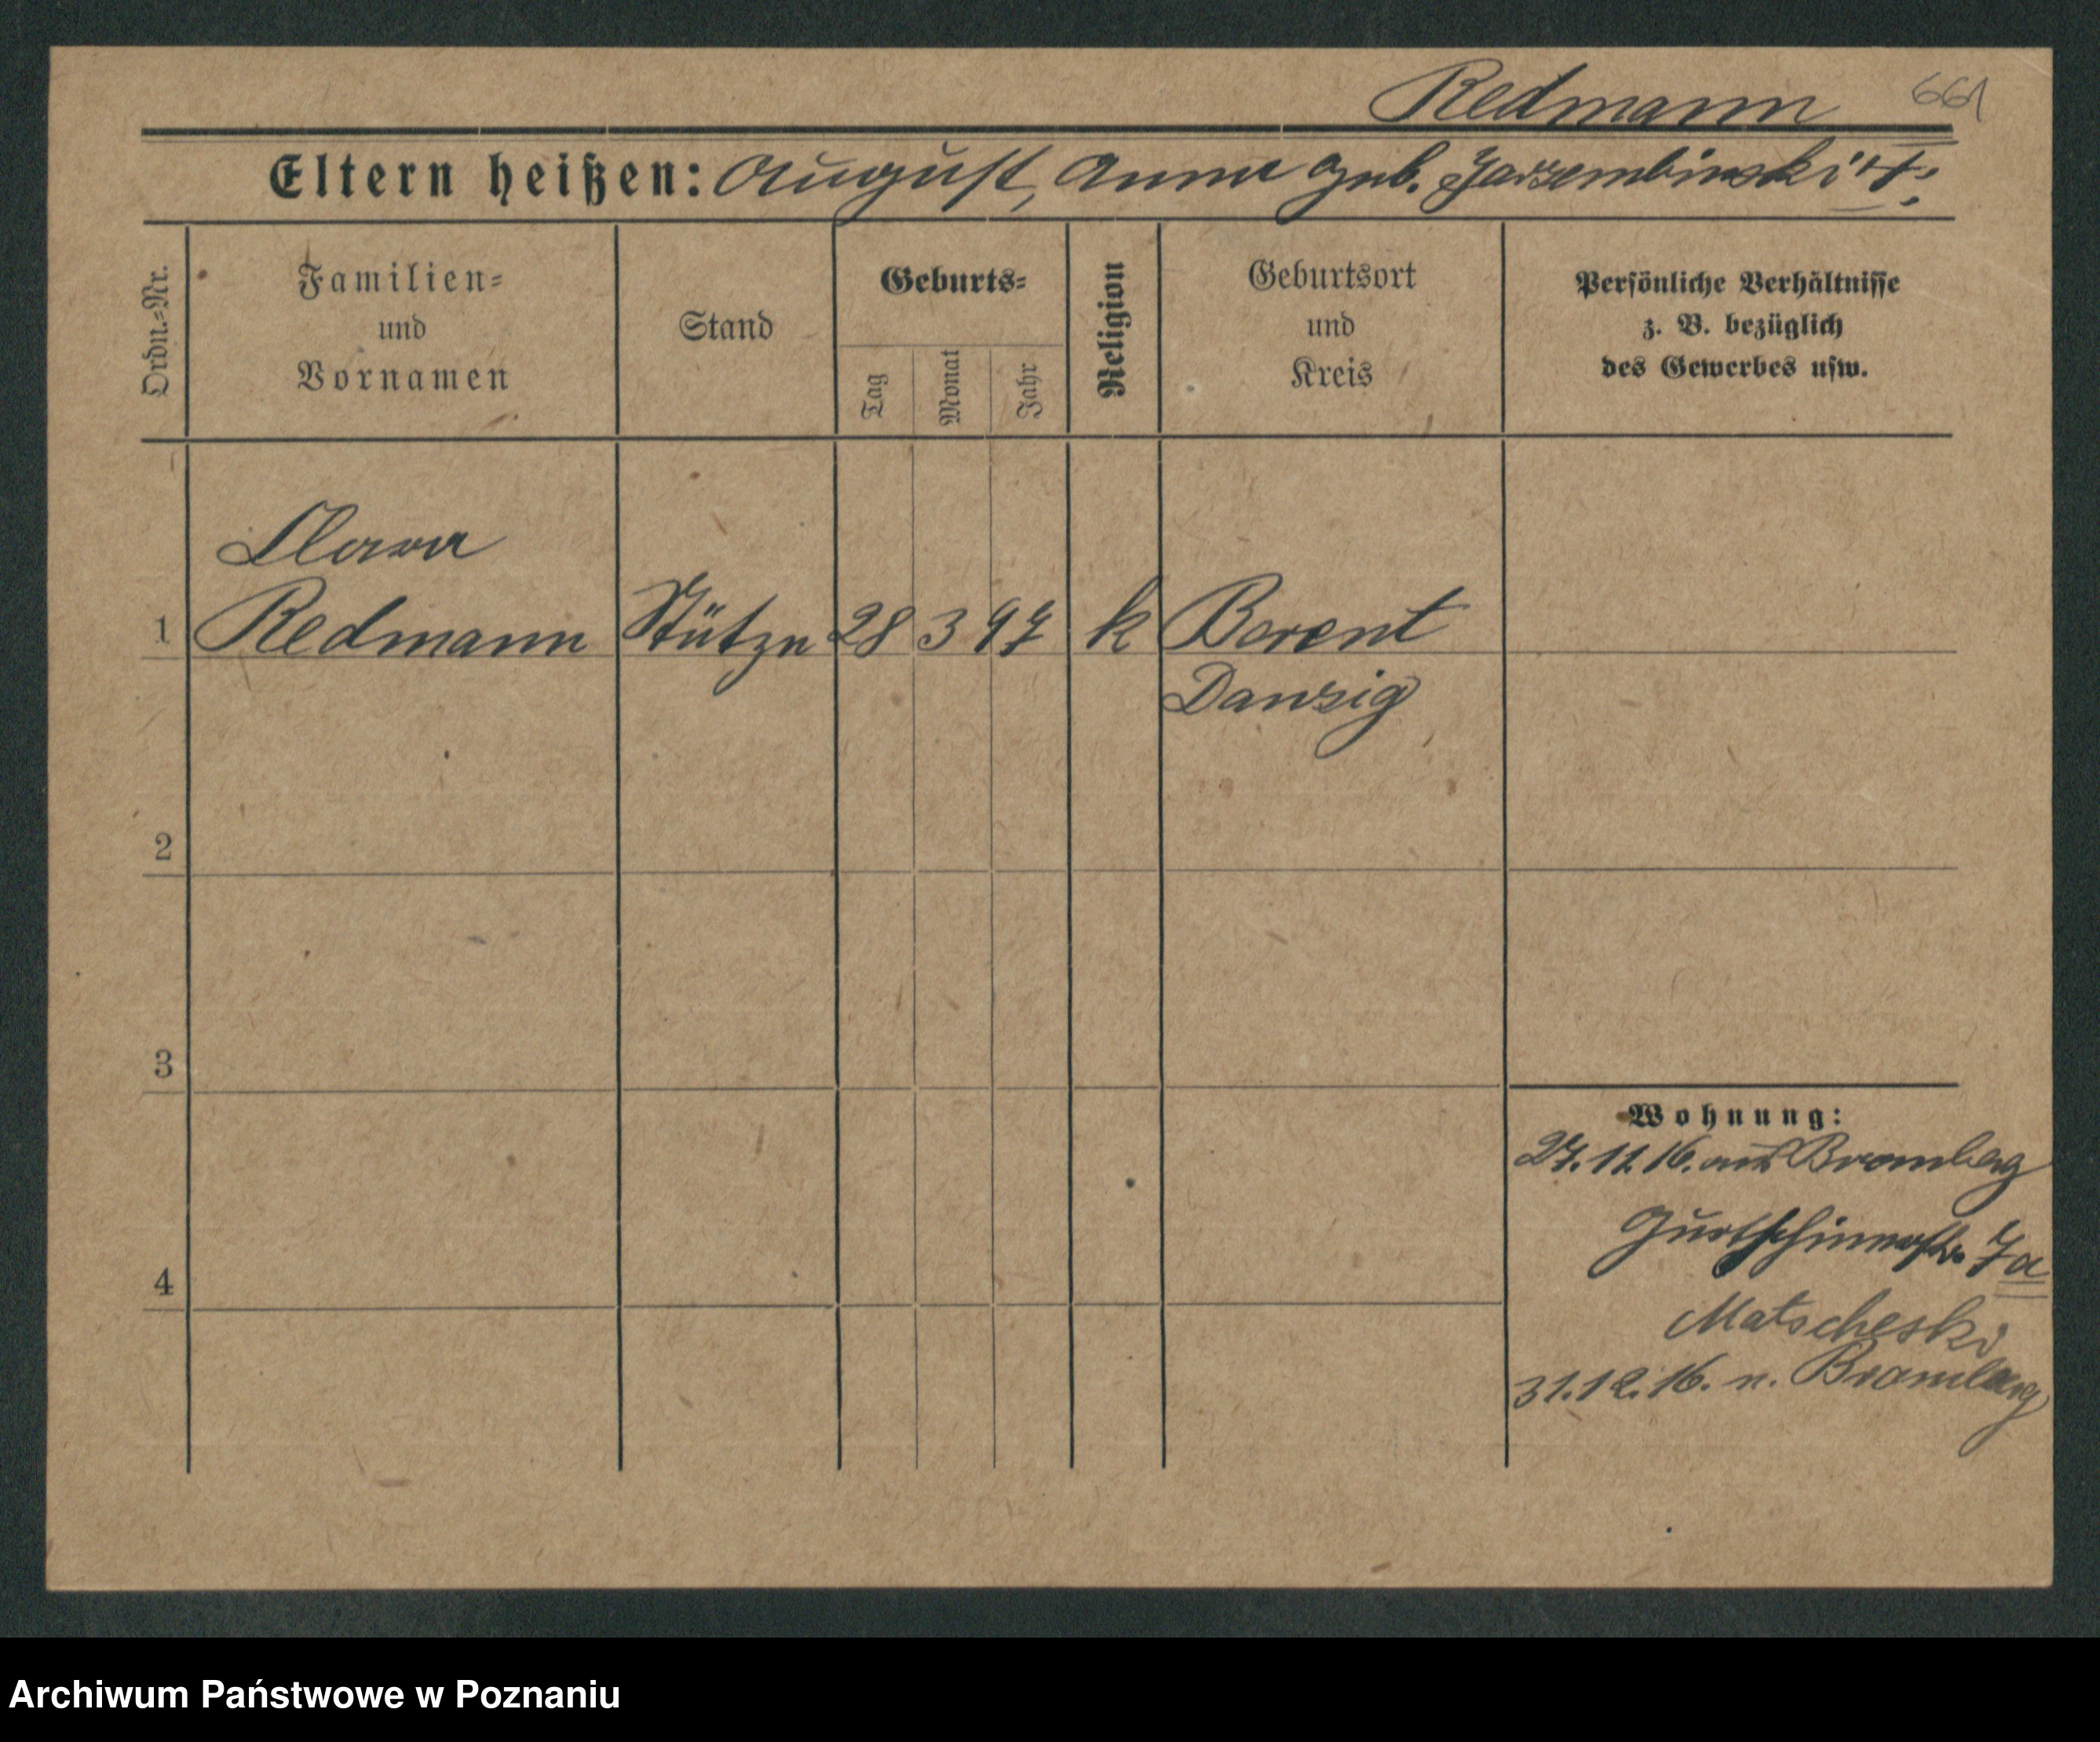 Redmann 661
Eltern heißen: August, Anna geb. Jarzembinski
Ordn.=Nr.
Familien=
und
Vornamen
Stand
Geburts=
Tag
Monat
Jahr
Religion
Geburtsort
und
Kreis
Persönliche Verhältnisse
z. B. bezüglich
des Gewerbes usw.
Clara
1 Redmann Stütze 28 3 97 k Berent
Danzig
2
3
4
Wohnung:
27.11.16. aus Bromberg
Gurtschinerstr. 7a
Matscheski
31.12.16. n. Bromberg
Archiwum Państwowe w Poznaniu